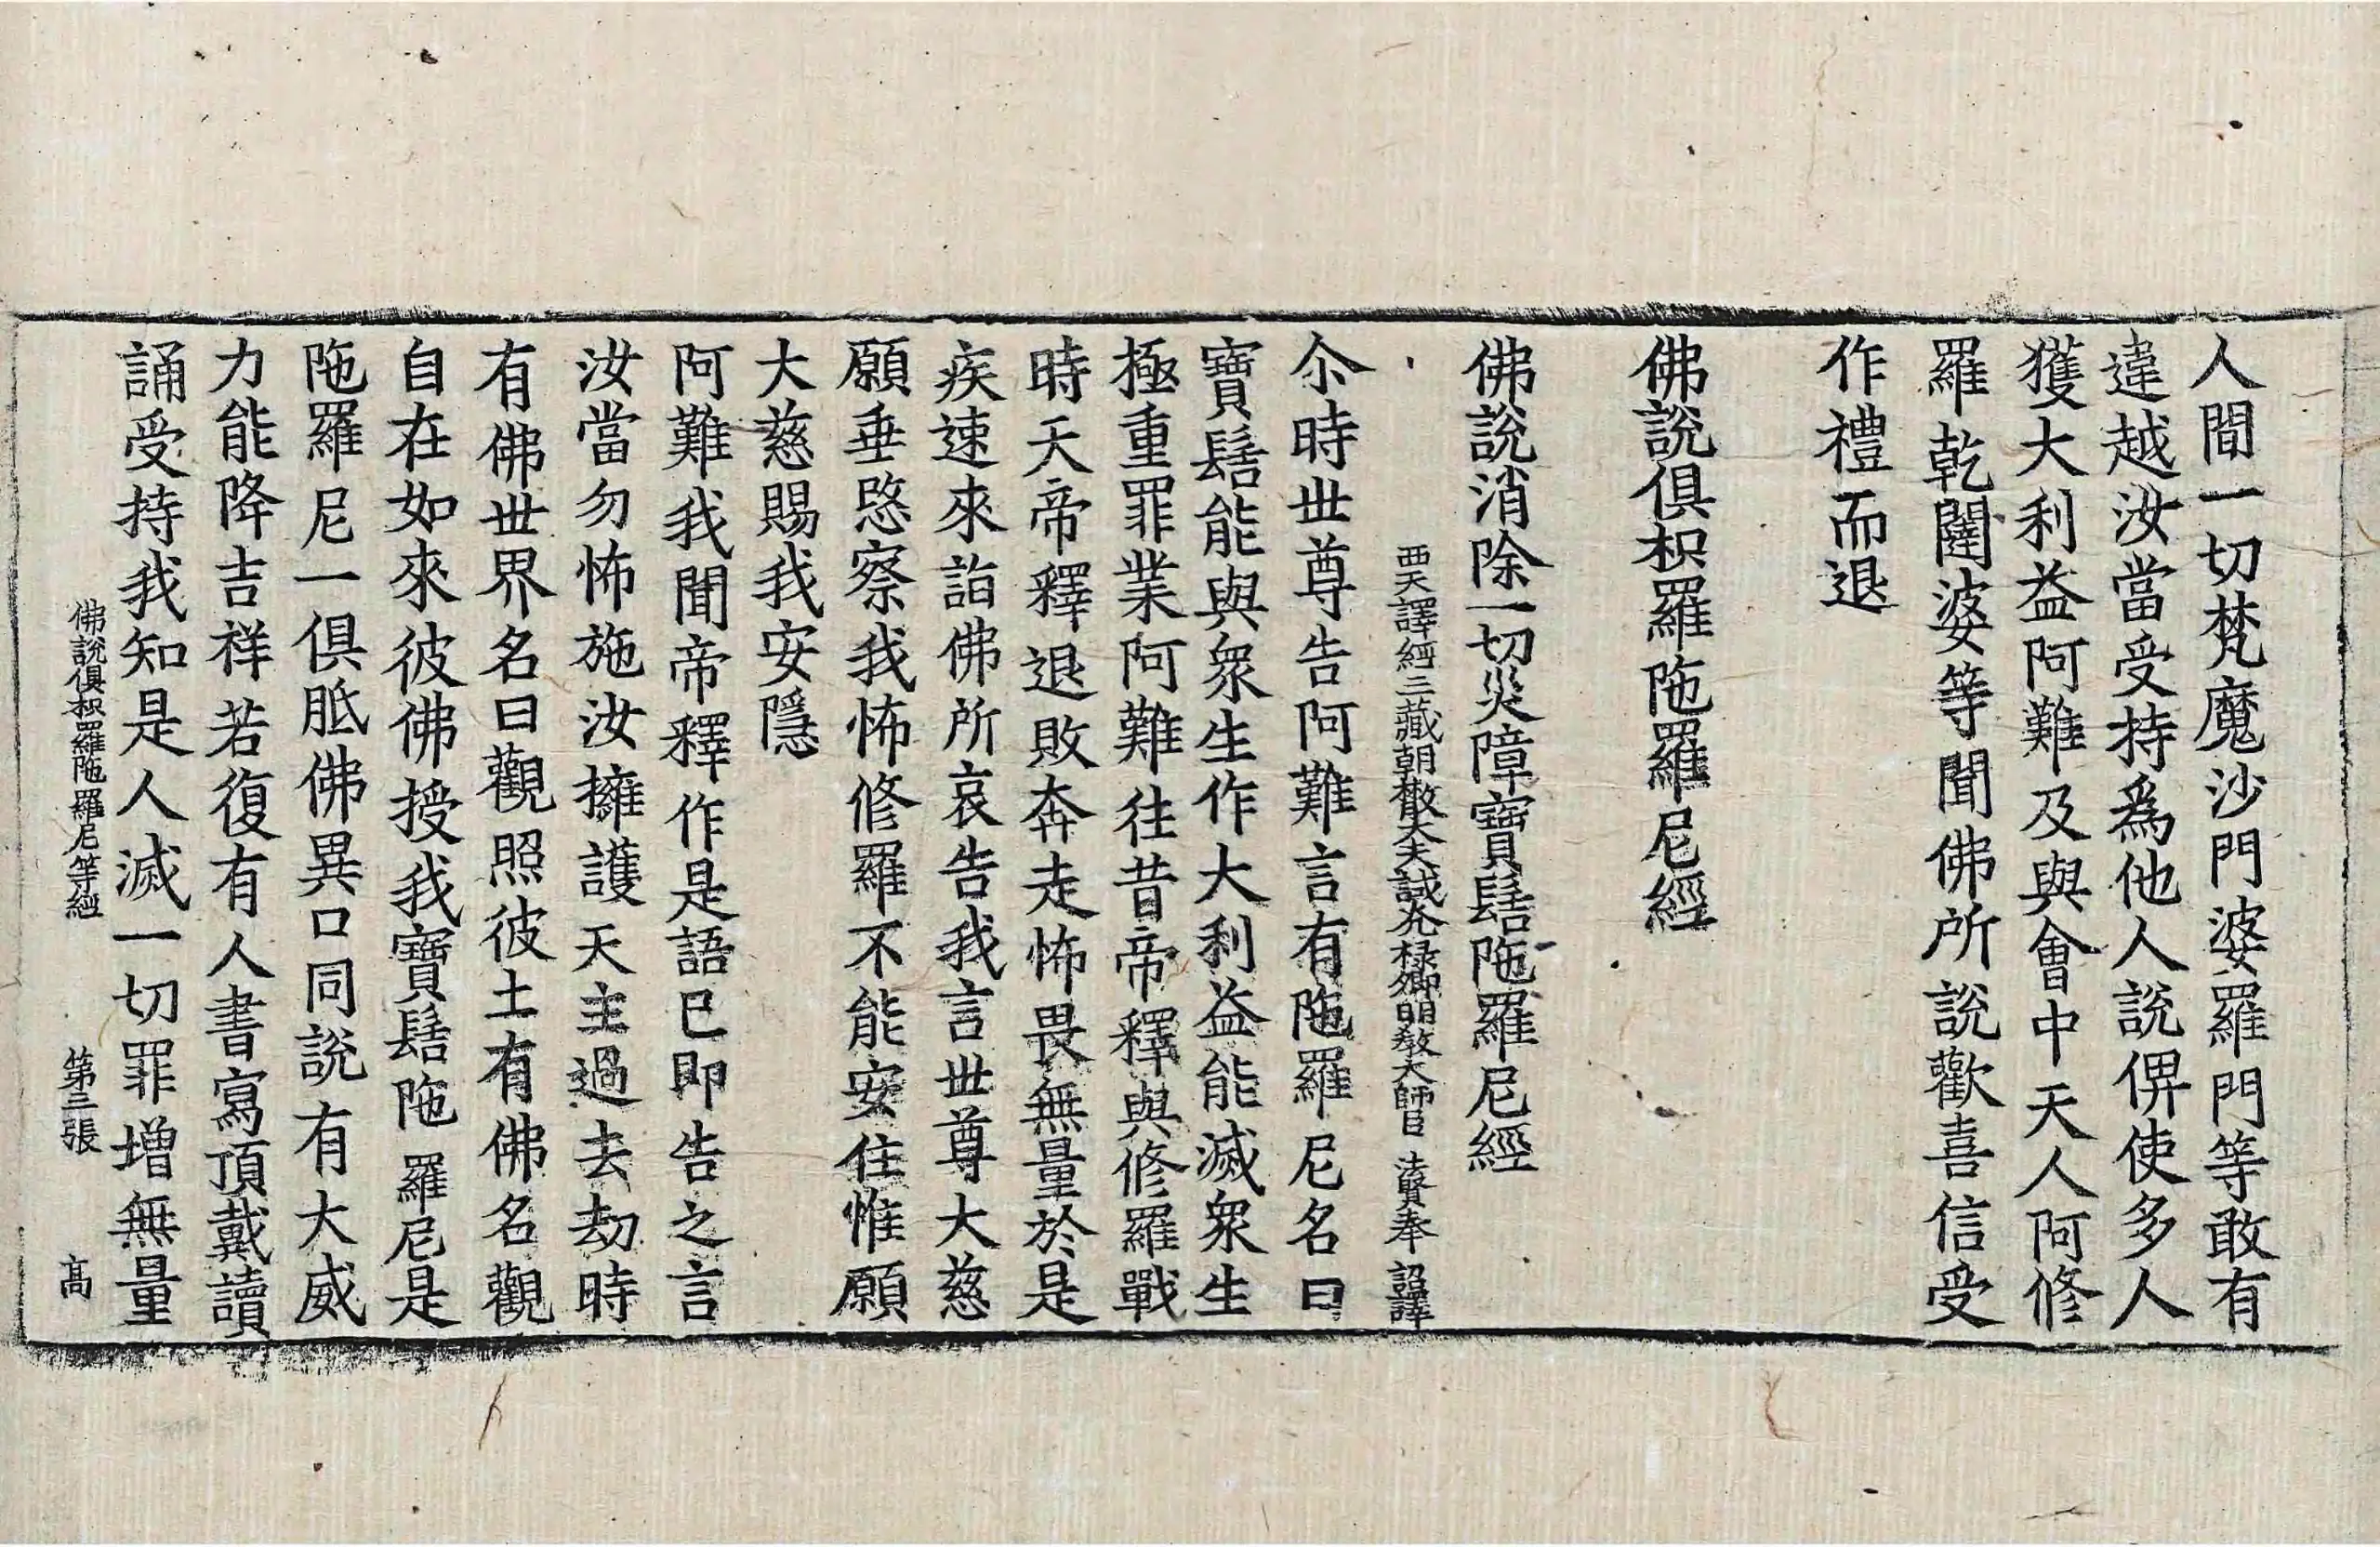 人間一切梵魔沙門婆羅門等敢有
違越汝當受持爲他人說俾使多人
獲大利益阿難及與會中天人阿修
羅乾闥婆等聞佛所說歡喜信受
作禮而退
佛說俱枳羅陁羅尼經
佛說消除一切災障寶髻陁羅尼經
西天譯經三藏朝散大夫試光祿卿明教大師臣法賢奉 詔譯
尒時世尊告阿難言有陁羅尼名曰
寶髻能與衆生作大利益能滅衆生
極重罪業阿難往昔帝釋與修羅戰
時天帝釋退敗奔走怖畏無量於是
疾速來詣佛所哀告我言世尊大慈
願垂愍察我怖修羅不能安住惟願
大慈賜我安隱
阿難我聞帝釋作是語已即告之言
汝當勿怖施汝擁護天主過去劫時
有佛世界名曰觀照彼土有佛名觀
自在如來彼佛授我寶髻陁羅尼是
陁羅尼一俱胝佛異口同說有大威
力能降吉祥若復有人書寫頂戴讀
誦受持我知是人滅一切罪增無量
佛說俱枳羅陁羅尼等經 第三張 高